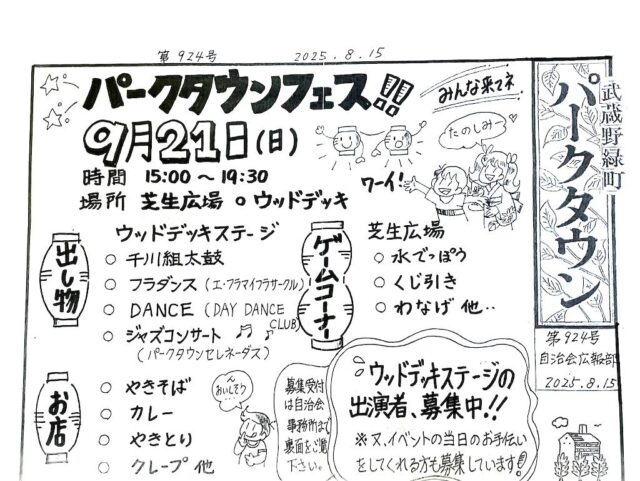 第924号 2025.8.15
パークタウンフェス!!
みんな来てネ
9月21日(日)
たのしみー
時間 15:00〜19:30
ワーイ!
場所 芝生広場 。ウッドデッキ
出し物
ウッドデッキステージ
○ 千川組太鼓
○ フラダンス(エ・フラマイフラサークル)
○ DANCE (DAY DANCE CLUB)
○ ジャズコンサート
(パークタウンセレネーダス)
ゲームコーナー
芝生広場
○ 水でっぽう
○ くじ引き
○ わなげ 他..
お店
○ やきそば
○ カレー
○ やきとり
○ クレープ 他
ん
おいしそう
募集受付
は自治会
事務所まで
裏面をご覧
下さい。
ウッドデッキステージの
出演者、募集中!!
※又、イベントの当日のお手伝い
をしてくれる方も募集しています!
武蔵野緑町
パークタウン
第924号
自治会広報部
2025.8.15